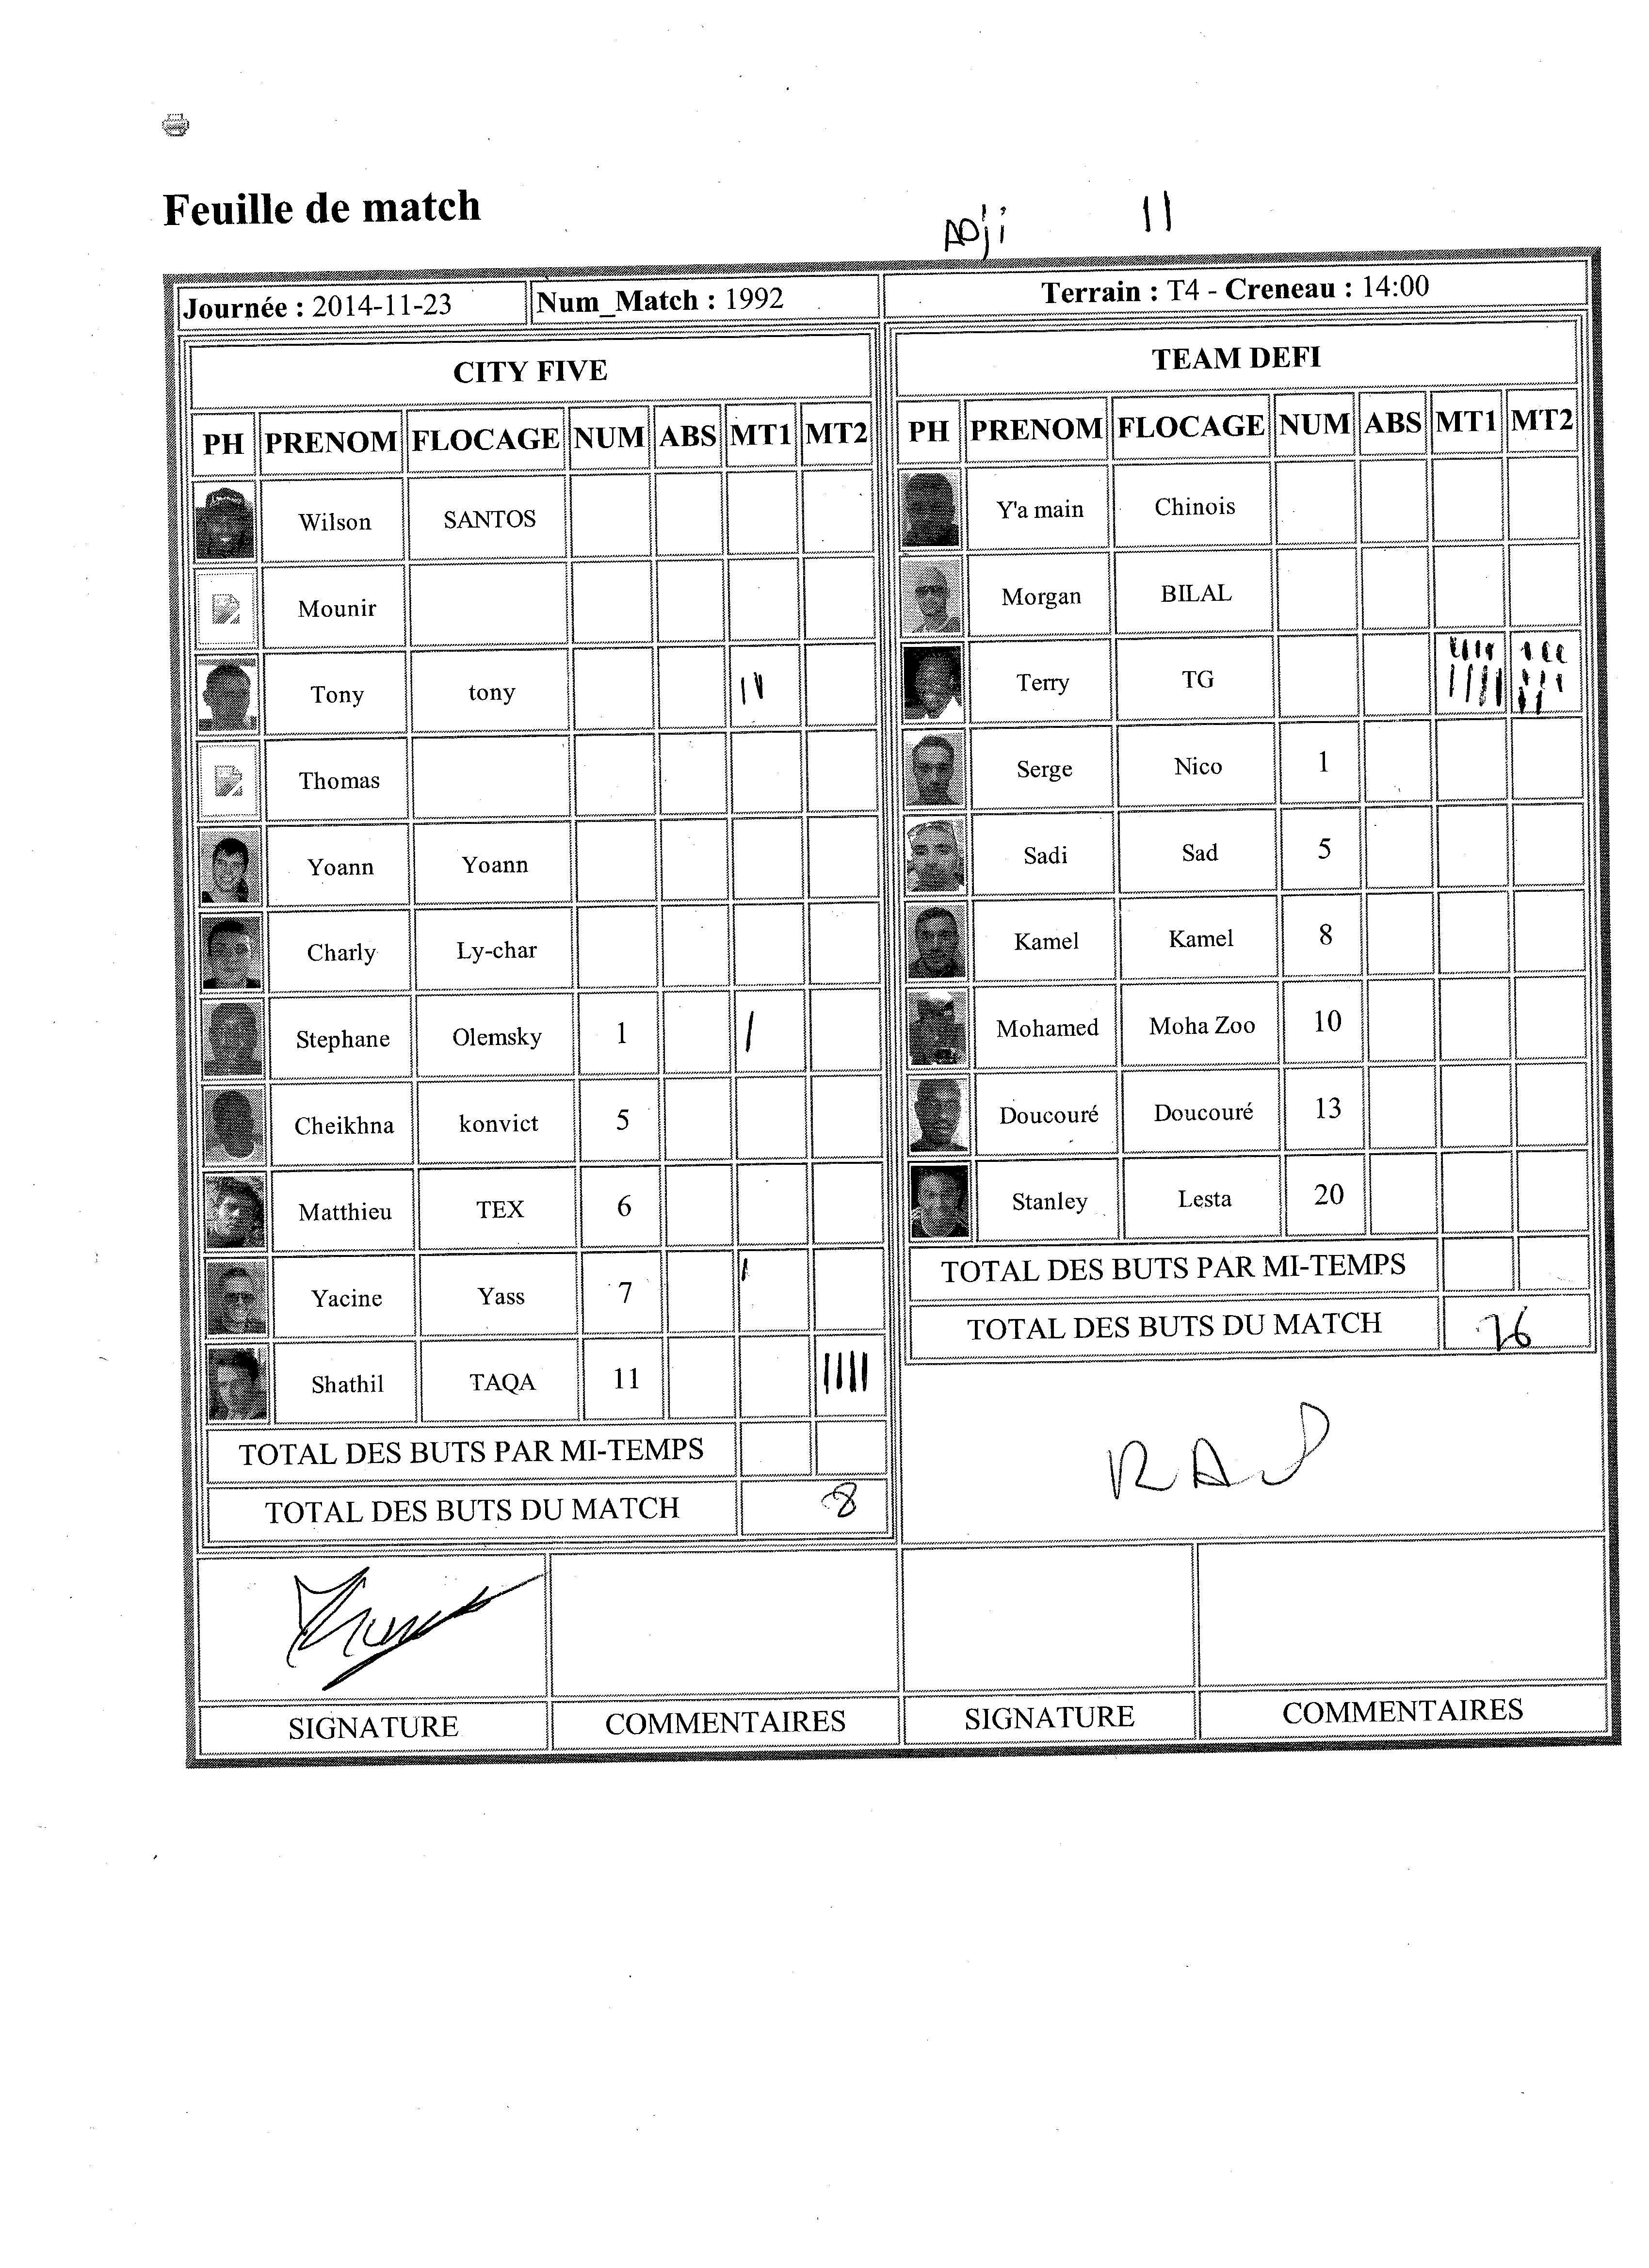 Feuille de match
Adji 11
Journée : 2014-11-23 Num_Match : 1992 Terrain : T4 - Creneau : 14:00
CITY FIVE
PH PRENOM FLOCAGE NUM ABS MT1 MT2
Wilson SANTOS
Mounir
Tony tony II
Thomas
Yoann Yoann
Charly Ly-char
Stephane Olemsky 1 I
Cheikhna konvict 5
Matthieu TEX 6
Yacine Yass 7 I
Shathil TAQA 11 IIII
TOTAL DES BUTS PAR MI-TEMPS
TOTAL DES BUTS DU MATCH 8
TEAM DEFI
PH PRENOM FLOCAGE NUM ABS MT1 MT2
Y'a main Chinois
Morgan BILAL
Terry TG
Serge Nico 1
Sadi Sad 5
Kamel Kamel 8
Mohamed Moha Zoo 10
Doucouré Doucouré 13
Stanley Lesta 20
TOTAL DES BUTS PAR MI-TEMPS
TOTAL DES BUTS DU MATCH
RAS
SIGNATURE COMMENTAIRES SIGNATURE COMMENTAIRES